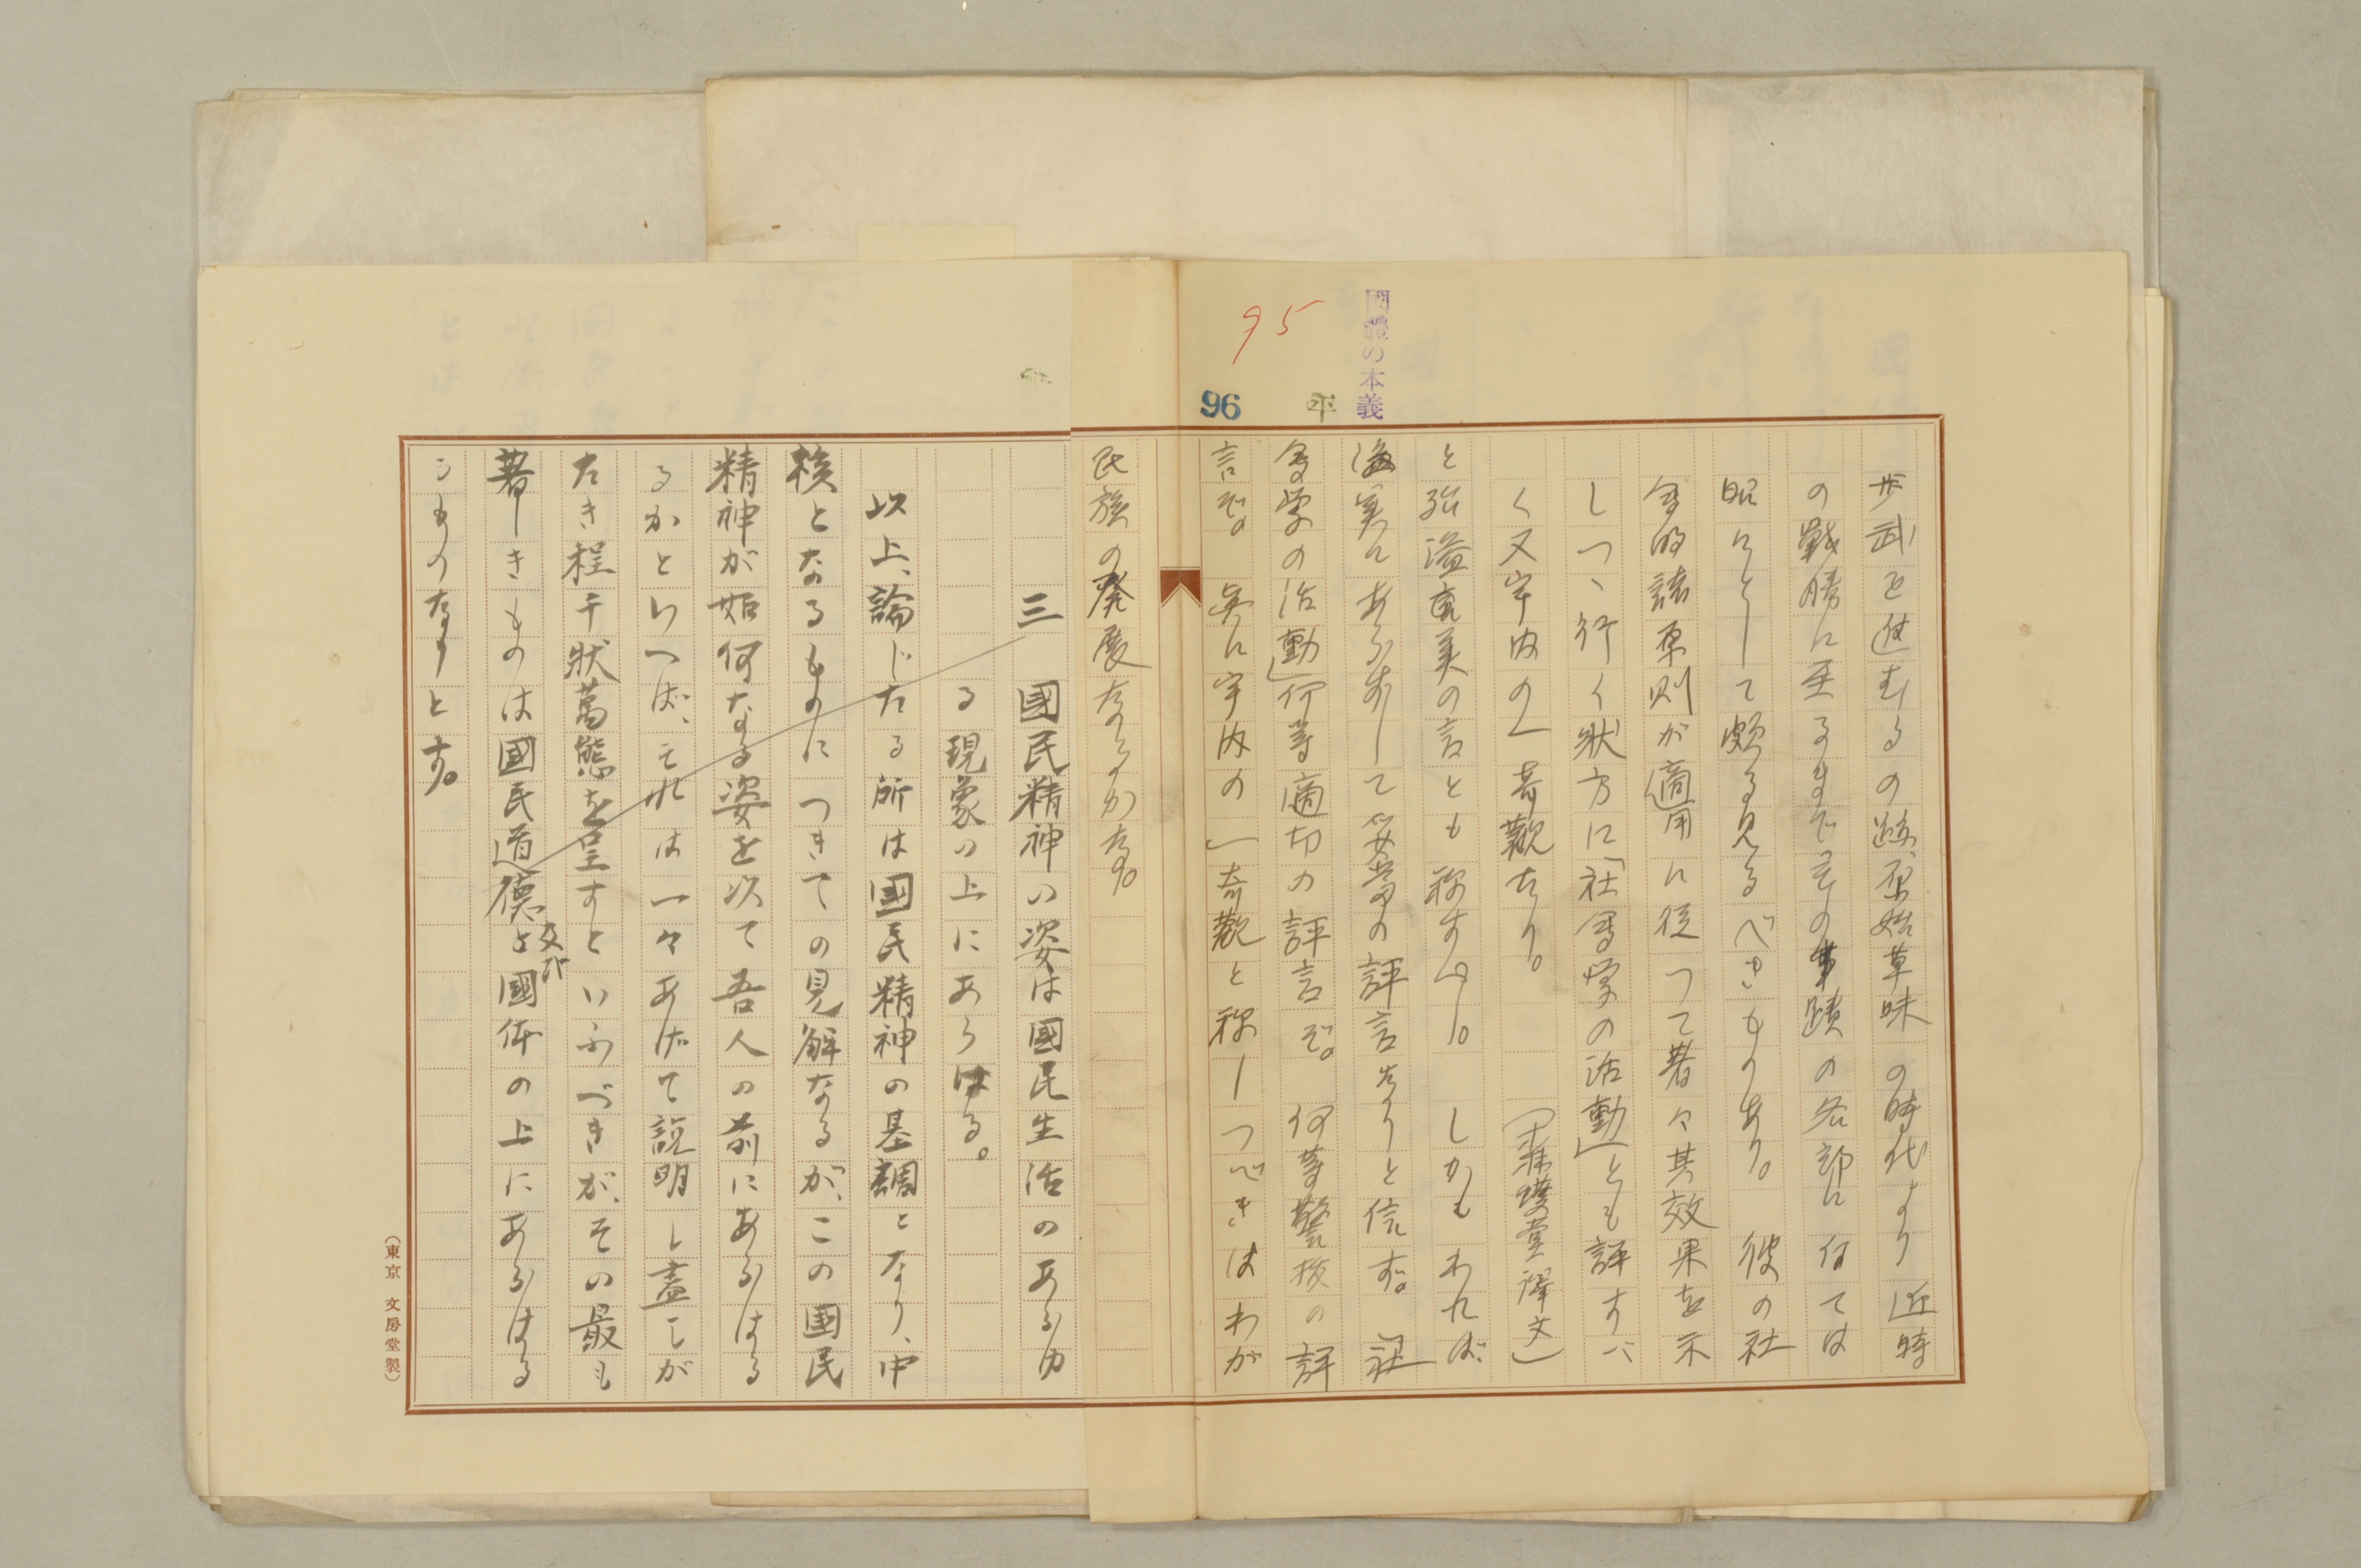 國體の本義
95
96
平
歩武を進むるの跡、原始草昧の時代より近時
の戰勝に至るまでその事蹟の各部に付ては
昭々として頗る見るべきものあり。 彼の社
會的諸原則が適用に從つて著々其效果を示
しつゝ行く狀方に「社會学の活動」とも評すべ
く又宇内の一奇觀なり。
と
美の言とも称すべし。 しかもわれば
実にあらずして 至當の評言なりと信ず。 「社
會学の活動」何等適切の評言ぞ。 何等警抜の評
言ぞ。 実に宇内の一奇觀と称しつべきはわが
民族の発展なるかな。
三 國民精神の姿は國民生活のあらゆ
る現象の上にあらはる。
以上、論じたる所は國民精神の基調となり、中
核となるものにつきての見解なるが、この國民
精神が如何なる姿を以て吾人の前にあらはる
るかといへば、それは一々あげて説明し盡しが
たき程千狀萬態を呈すといふべきが、その最も
著しきものは國民道德と國体の上にあらはる
文化
うものなりとす。
(東京 文房堂製)